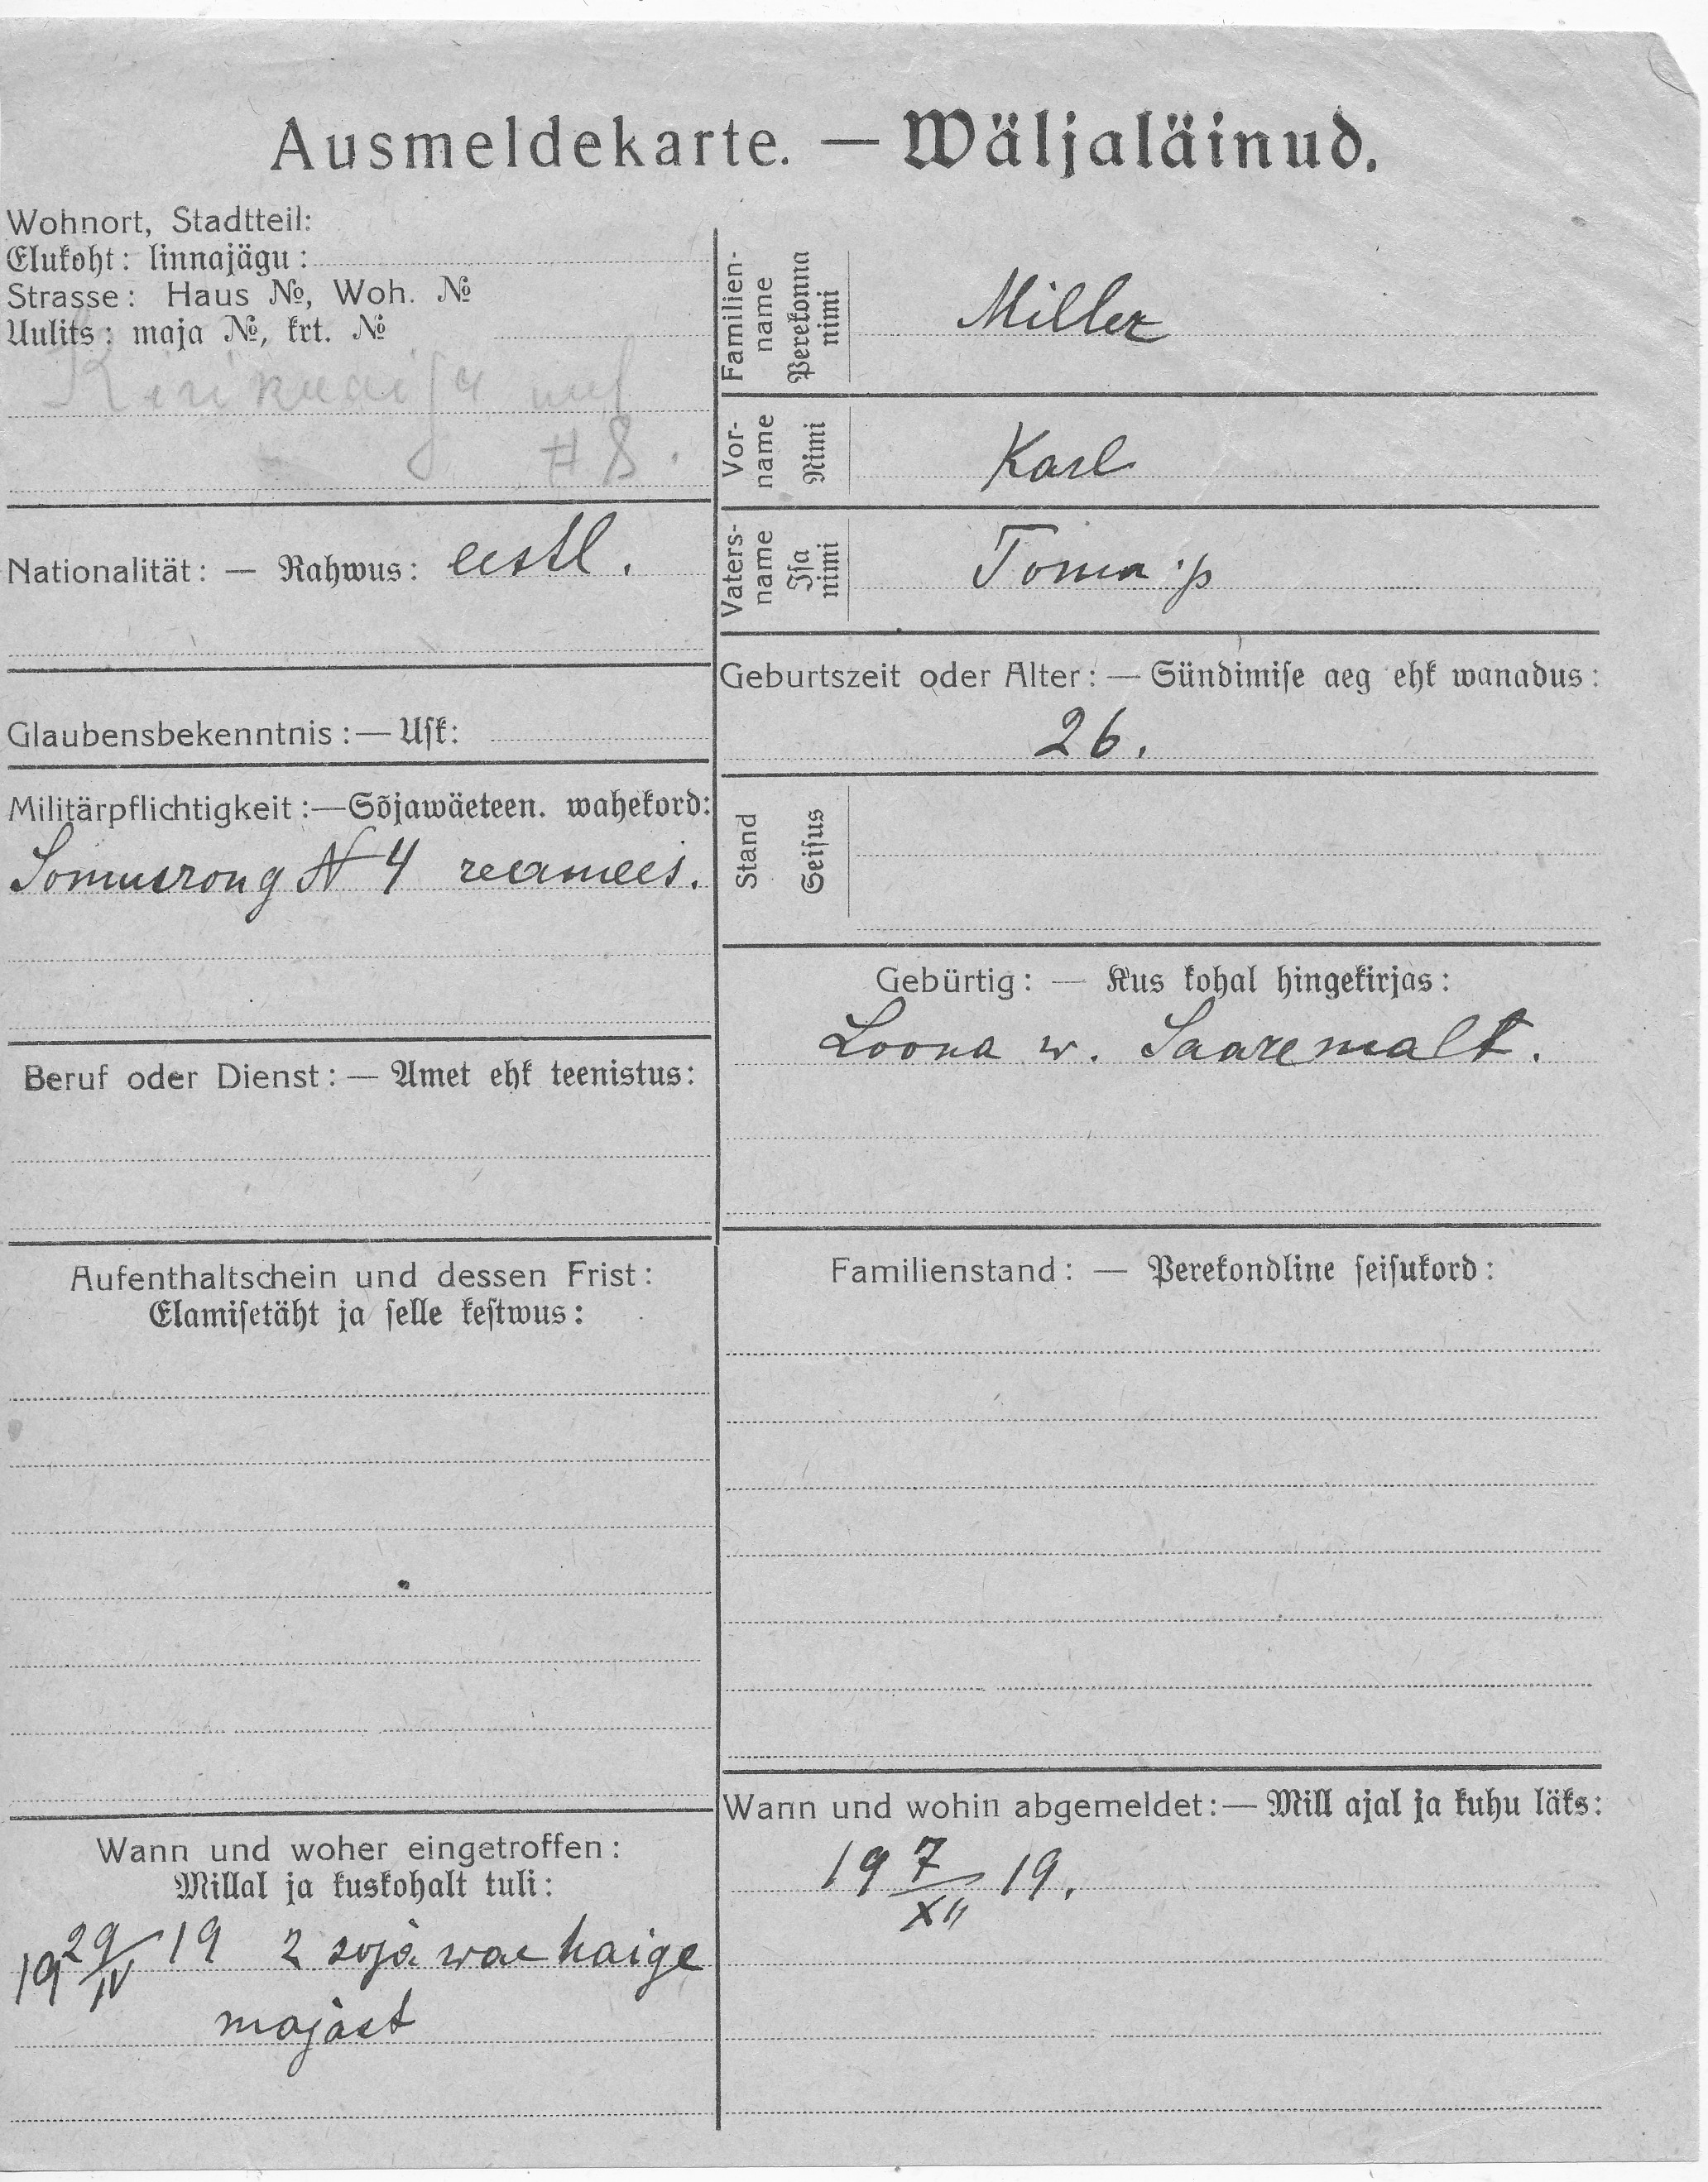 Ausmeldekarte. — Wäljaläinud.
Wohnort, Stadtteil:
Elukoht: linnajägu:
Strasse: Haus №, Woh. №
Uulits: maja №, krt. №
# 8.
Nationalität: — Rahwus: eestl.
Glaubensbekenntnis:— Usk:
Militärpflichtigkeit:—Sõjawäeteen. wahekord:
Somusrong N 4 reamees.
Beruf oder Dienst: — Amet ehk teenistus:
Aufenthaltschein und dessen Frist:
Elamisetäht ja selle kestwus:
Wann und woher eingetroffen:
Millal ja kuskohalt tuli:
19 29/IV 19 2 soja wae haige
majast
Familien-
name
Perekonna
nimi
Miller
Vor-
name
Nimi
Karl
Vaters-
name
Isa
nimi
Toma p
Geburtszeit oder Alter: — Sündimise aeg ehk wanadus:
26.
Stand
Seisus
Gebürtig: — Kus kohal hingekirjas:
Loona w. Saaremalt.
Familienstand: — Perekondline seisukord:
Wann und wohin abgemeldet:— Mill ajal ja kuhu läks:
19 7/XII 19.